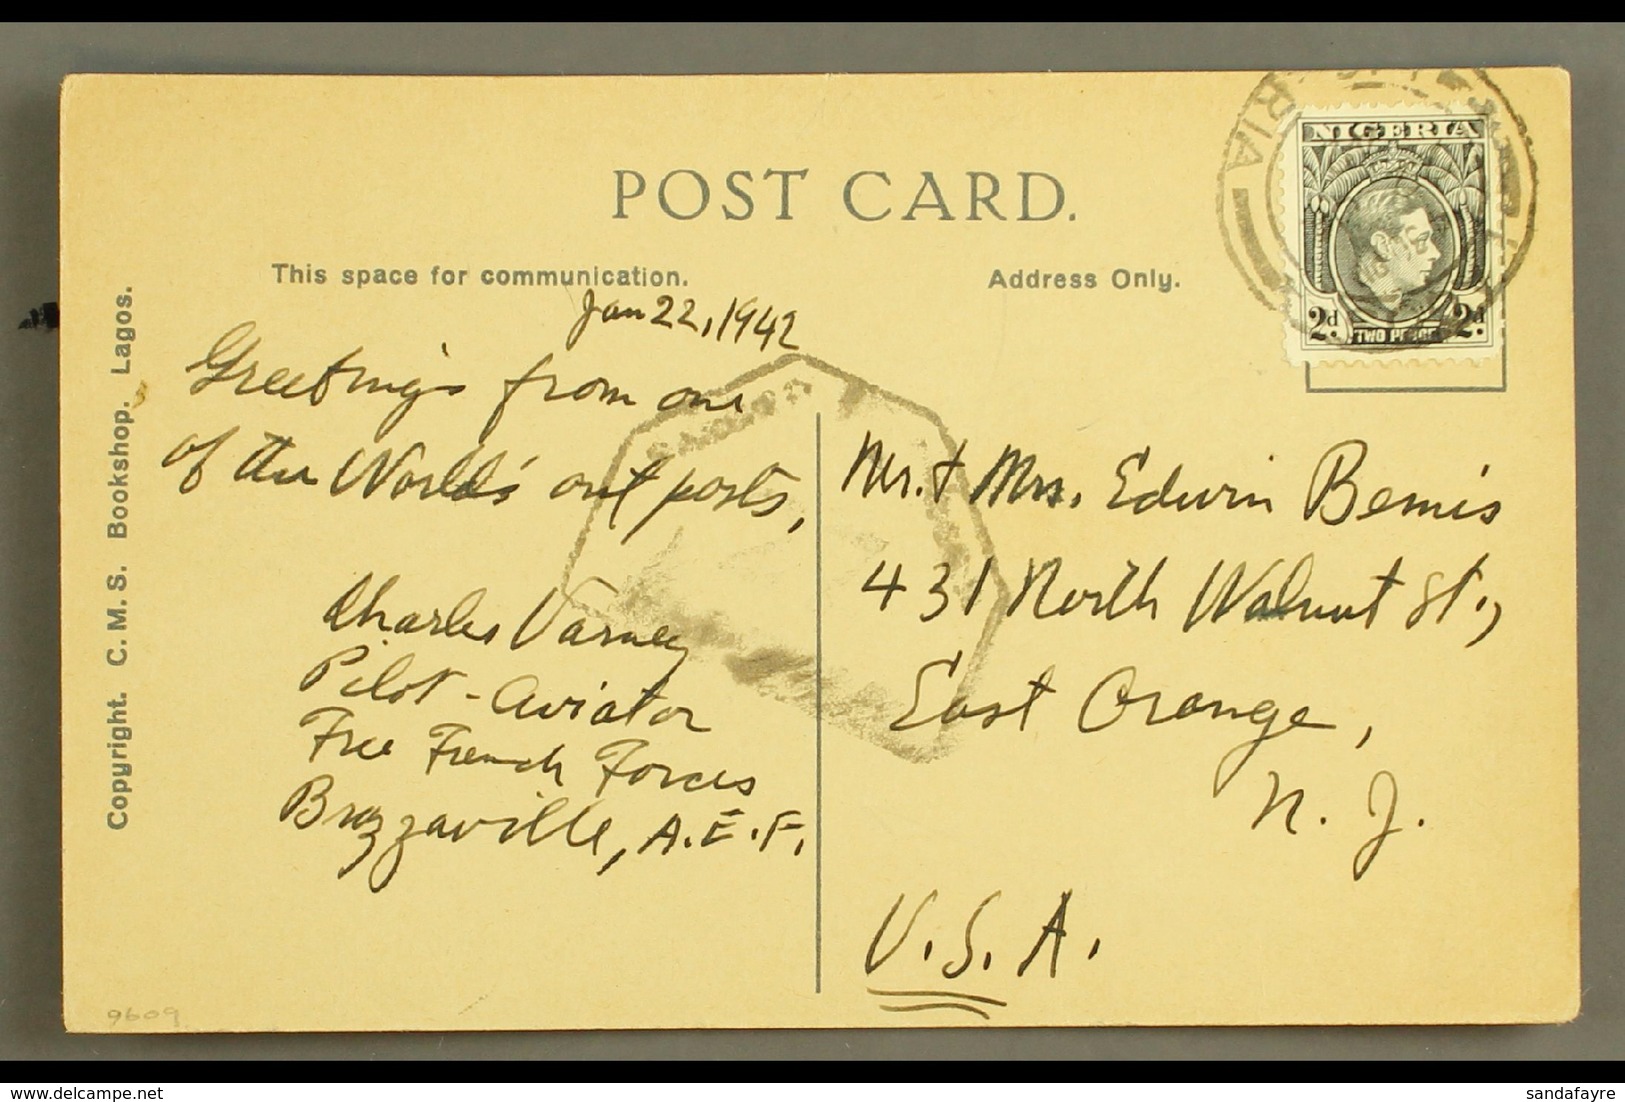 POST CARD.
This space for communication.
Address Only.
Copyright. C. M. S. Bookshop. Lagos.
NIGERIA
2d
TWO PENCE
2d
RIA
Jan 22, 1942
Greetings from one
of the World's out posts,
Charles Varney
Pilot-Aviator
Free French Forces
Brazzaville, A.E.F.
Mr. + Mrs. Edwin Bemis
431 North Walnut St.,
East Orange,
N. J.
U.S.A.
9609
delcampe.net
sandafayre